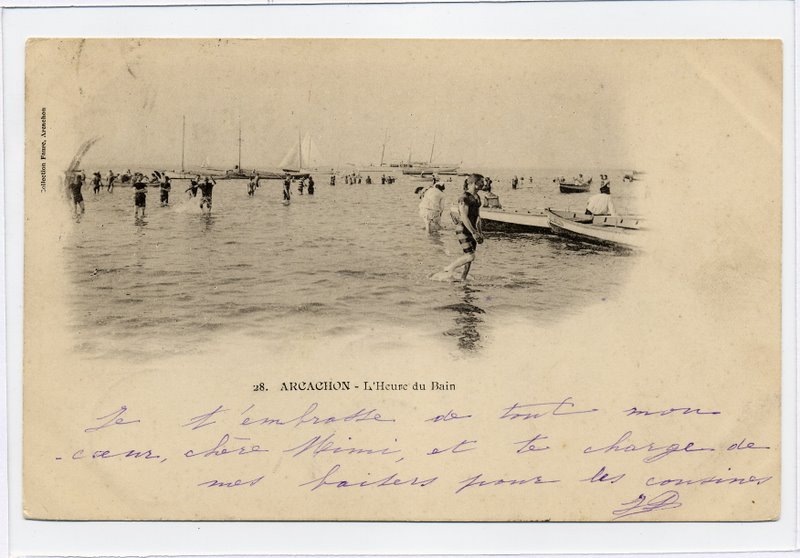 Collection Faure, Arcachon
28. ARCACHON - L'Heure du Bain
Je t'embrasse de tout mon
cœur, chère Mimi, et te charge de
mes baisers pour les cousines